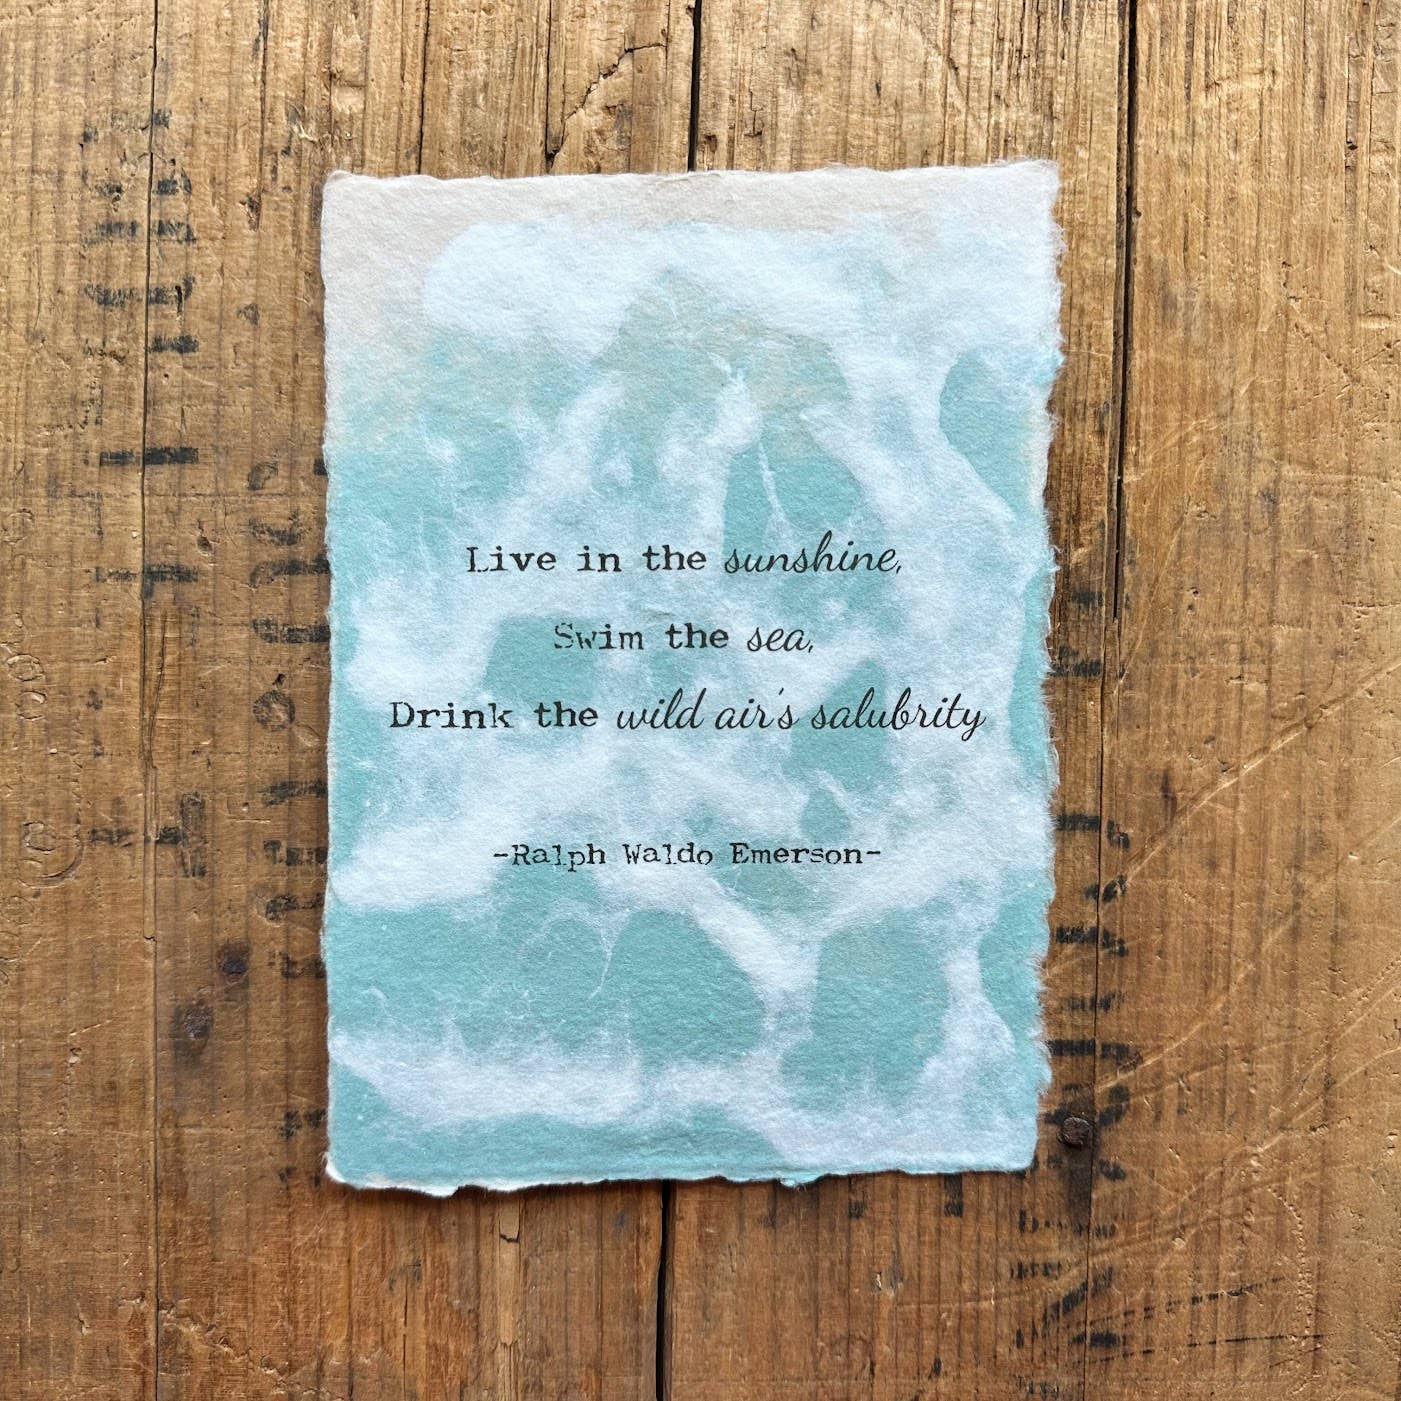 Live in the sunshine,
Swim the sea,
Drink the wild air's salubrity
-Ralph Waldo Emerson-